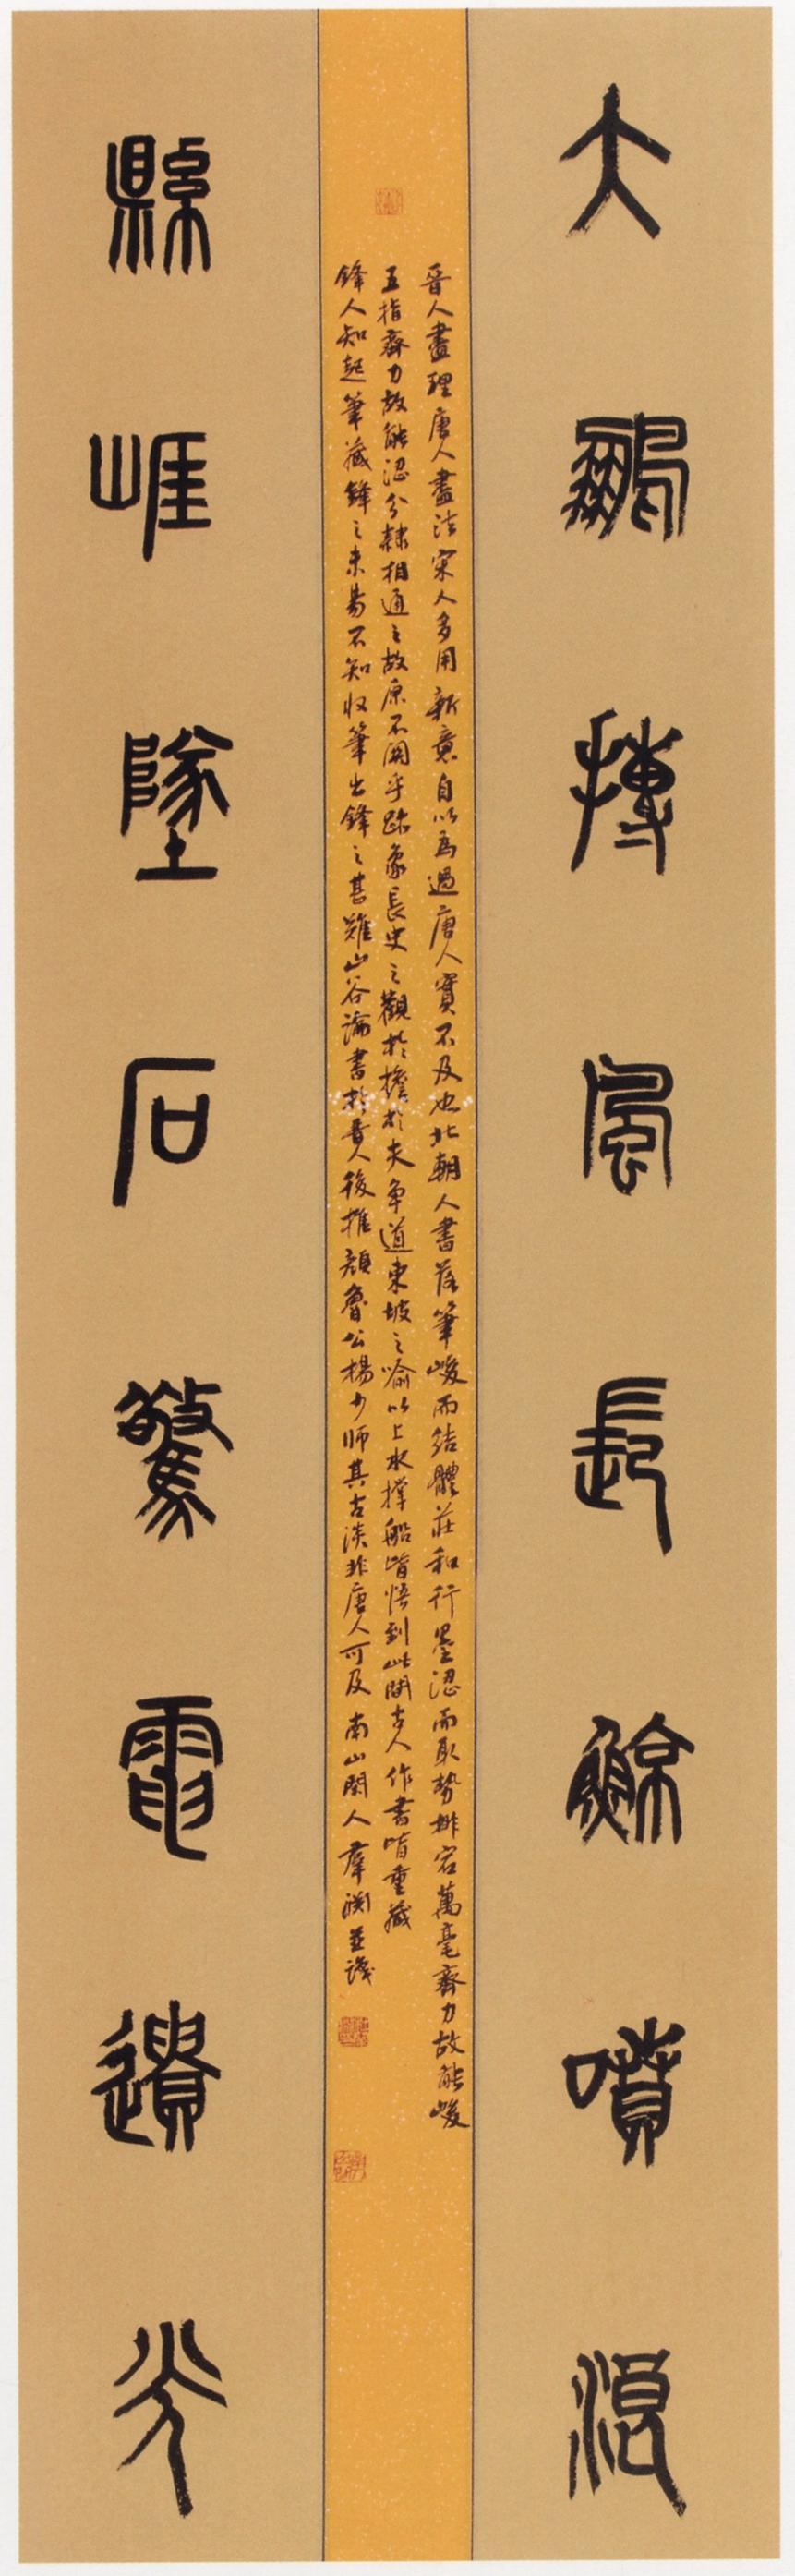 大鵬摶風長鯨噴浪
晉人盡理唐人盡法宋人多用新意自以為過唐人實不及也北朝人書落筆峻而結體莊和行墨澀而取勢排宕萬毫齊力故能峻
五指齊力故能澀分隸相通之故原不關乎跡象長史之觀於擔於夫爭道東坡之喻以上水撐船皆悟到此間古人作書皆重藏
鋒人知起筆藏鋒之未易不知收筆出鋒之甚難山谷論書於晉人後推顏魯公楊少師其古淡非唐人可及南山閑人 並識
縣崖墜石驚電遺光